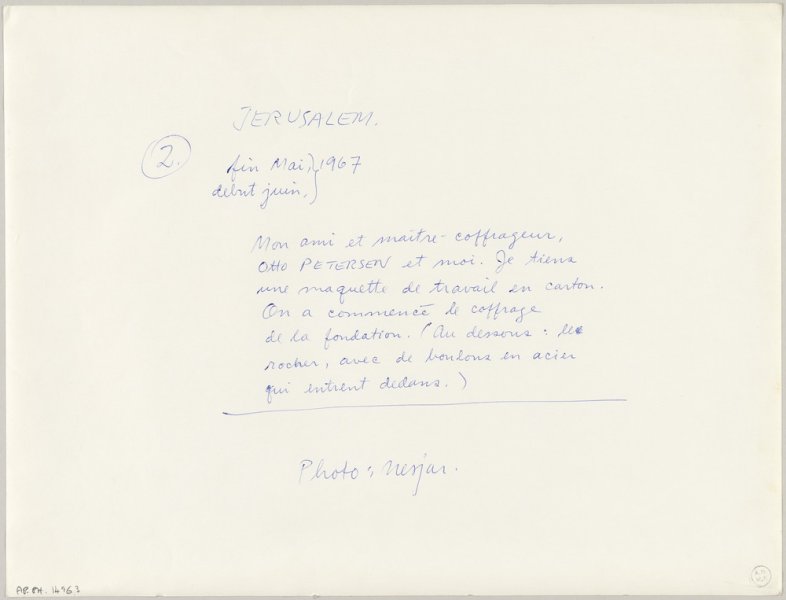 JERUSALEM.
2.
fin Mai, } 1967
debut juin, }
Mon ami et maître-coffrageur,
Otto PETERSEN et moi. Je tiens
une maquette de travail en carton.
On a commencé le coffrage
de la fondation. (Au dessous : le
rocher, avec de boulons en acier
qui entrent dedans.)
Photo : Nesjar.
AP. PH. 14963